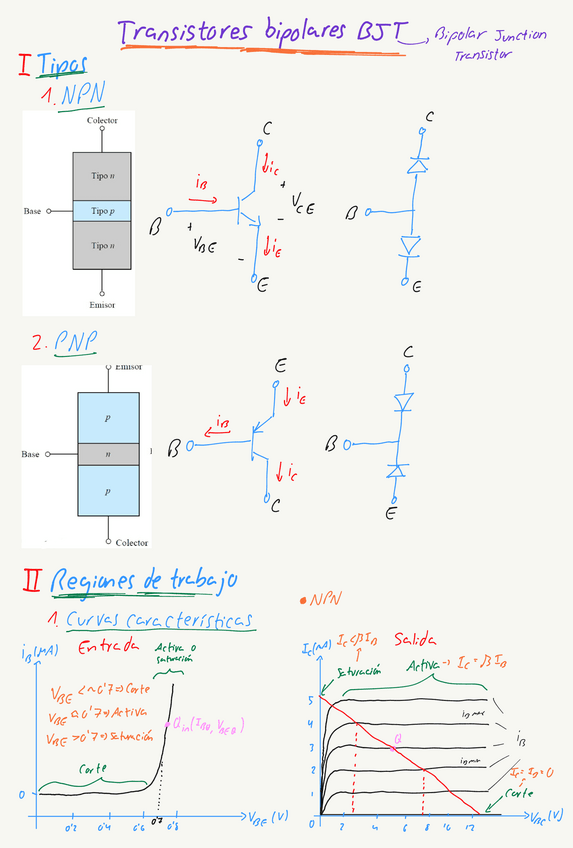 Transistores bipolares BJT
Bipolar Junction
Transistor
I Tipos
1. NPN
Colector
Tipo n
Base
Tipo p
Tipo n
Emisor
C
iC
iB
B
+
VBE
-
+
VCE
-
iE
E
C
B
E
2. PNP
Emisor
p
Base
n
p
Colector
E
iE
iB
B
iC
C
C
B
E
II Regiones de trabajo
• NPN
1. Curvas características
iB (μA)
Entrada
Activa o
saturación
VBE < ~0'7 => Corte
VBE ≈ 0'7 => Activa
VBE > 0'7 => Saturación
Qin (IBQ, VBEQ)
Corte
0
0'2
0'4
0'6
0'7
0'8
VBE (V)
IC (mA)
IC < βIB
Salida
Saturación
Activa → IC = βIB
5
4
3
2
1
0
Q
iB
IC = IB = 0
Corte
2
4
6
8
10
12
(V)